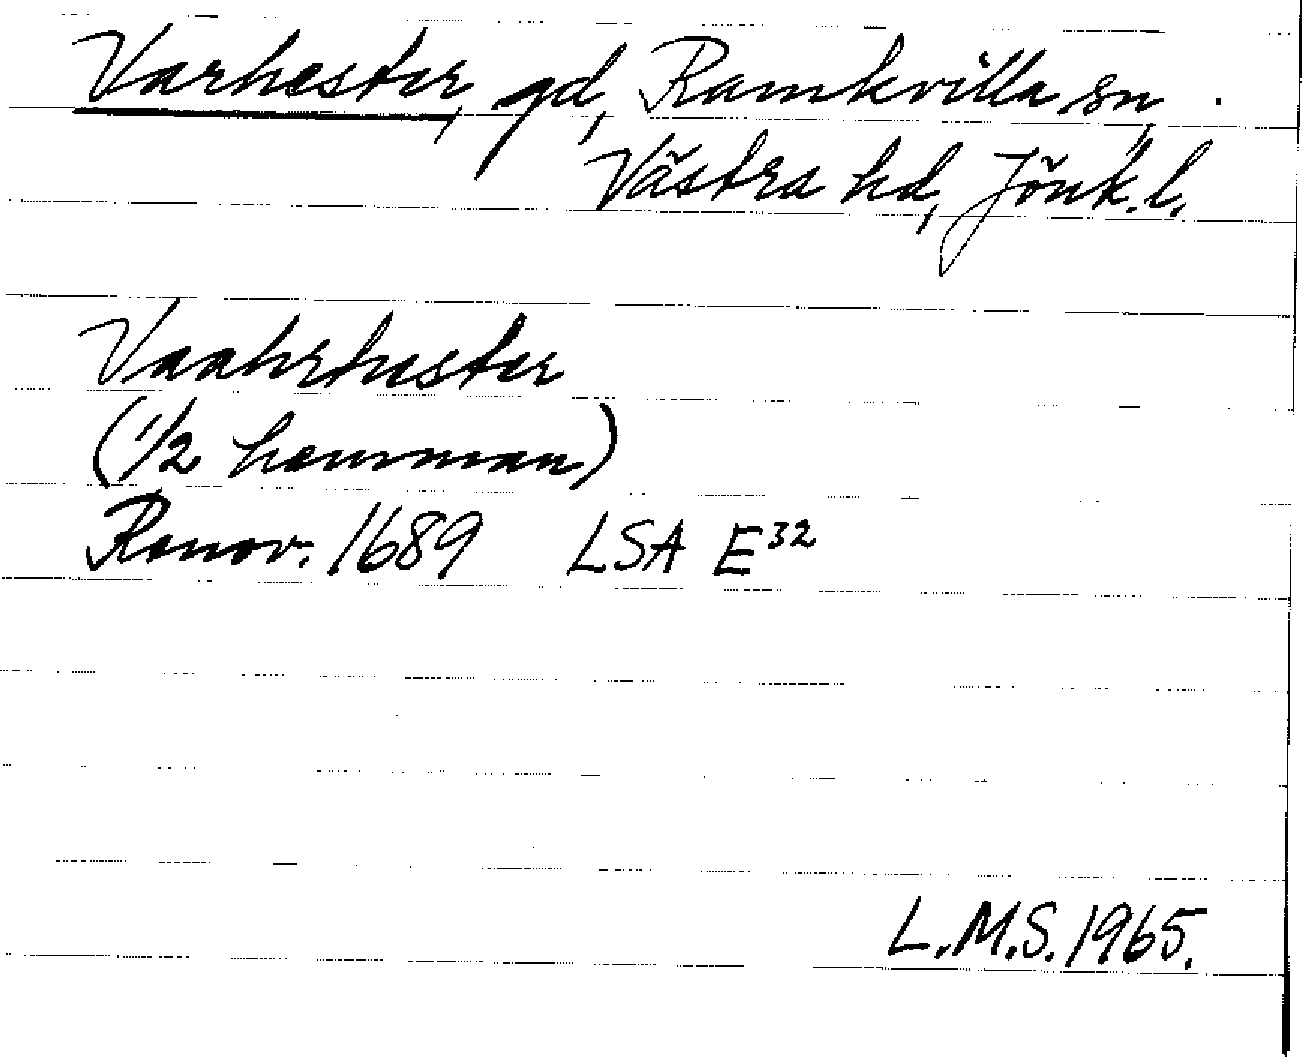 Varhester, gd, Ramkvilla sn,
Västra hd, Jönk. l.
Vaahrhester
(1/2 hemman)
Renov. 1689 LSA E32
L.M.S. 1965.